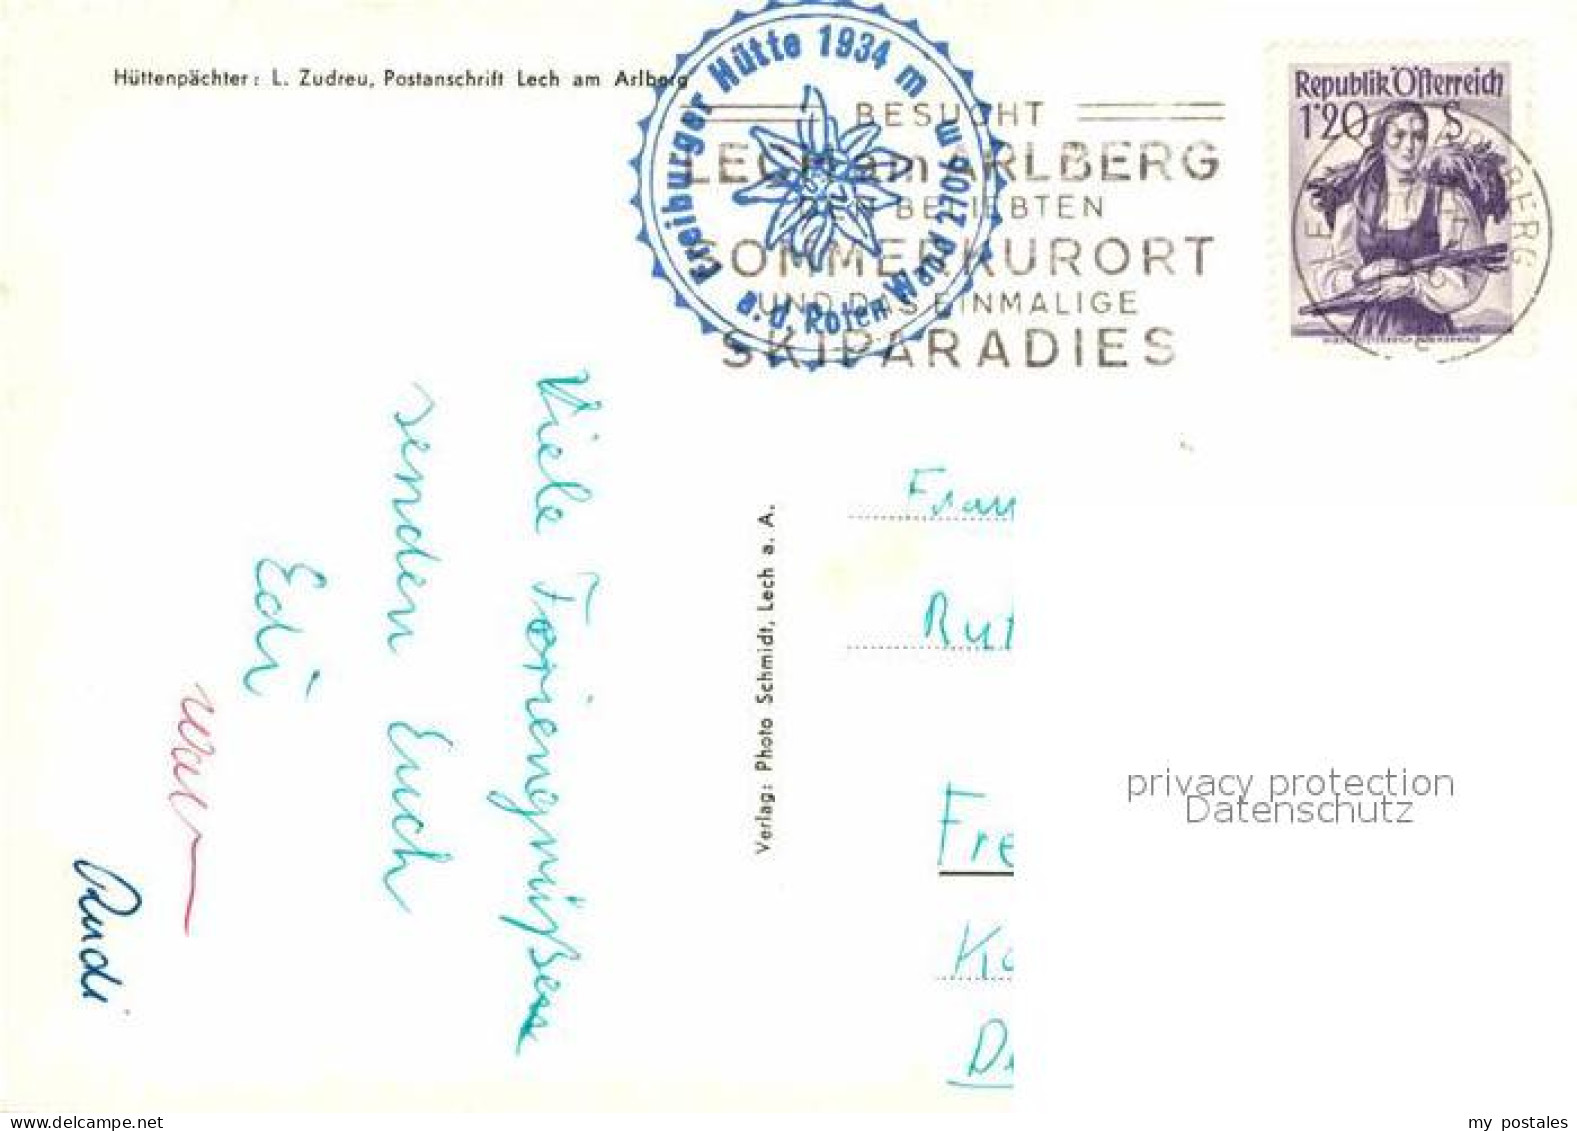 Hüttenpächter: L. Zudreu, Postanschrift Lech am Arlberg
Freiburger Hütte 1934 m
a. d. Roten Wand 2706 m
BESUCHT
LECH am ARLBERG
DEN BELIEBTEN
SOMMERKURORT
UND DAS EINMALIGE
SKIPARADIES
Republik Österreich
1'20 S
Viele Feriengrüße
senden Euch
Edi
Rudi
Verlag: Photo Schmidt, Lech a. A.
Frau
Rut
Fre
Ka
privacy protection
Datenschutz
delcampe.net
my postales